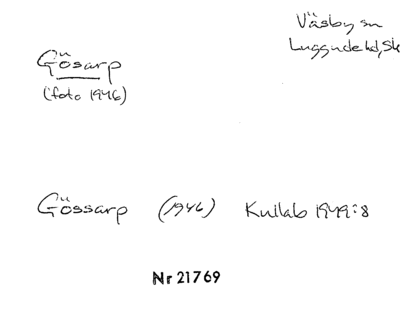 Väsby sn
Luggude hd, Sk
Gösarp
(foto 1946)
Gössarp (1946) Kullab 1949:8
Nr 21769